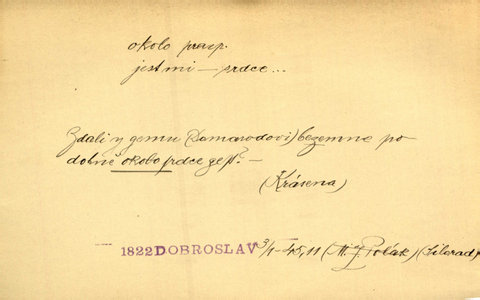 okolo praep.
jest mi — srdce...
Zdali y gemu (Damarodovi) bezemne po
dobně okolo srdce gest? —
(Krásena)
— 1822 DOBROSLAV 3/1-45,11 (M. J. Polák) (Liberad)